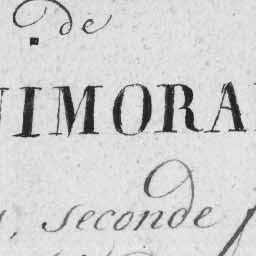 de
UIMORA
, seconde